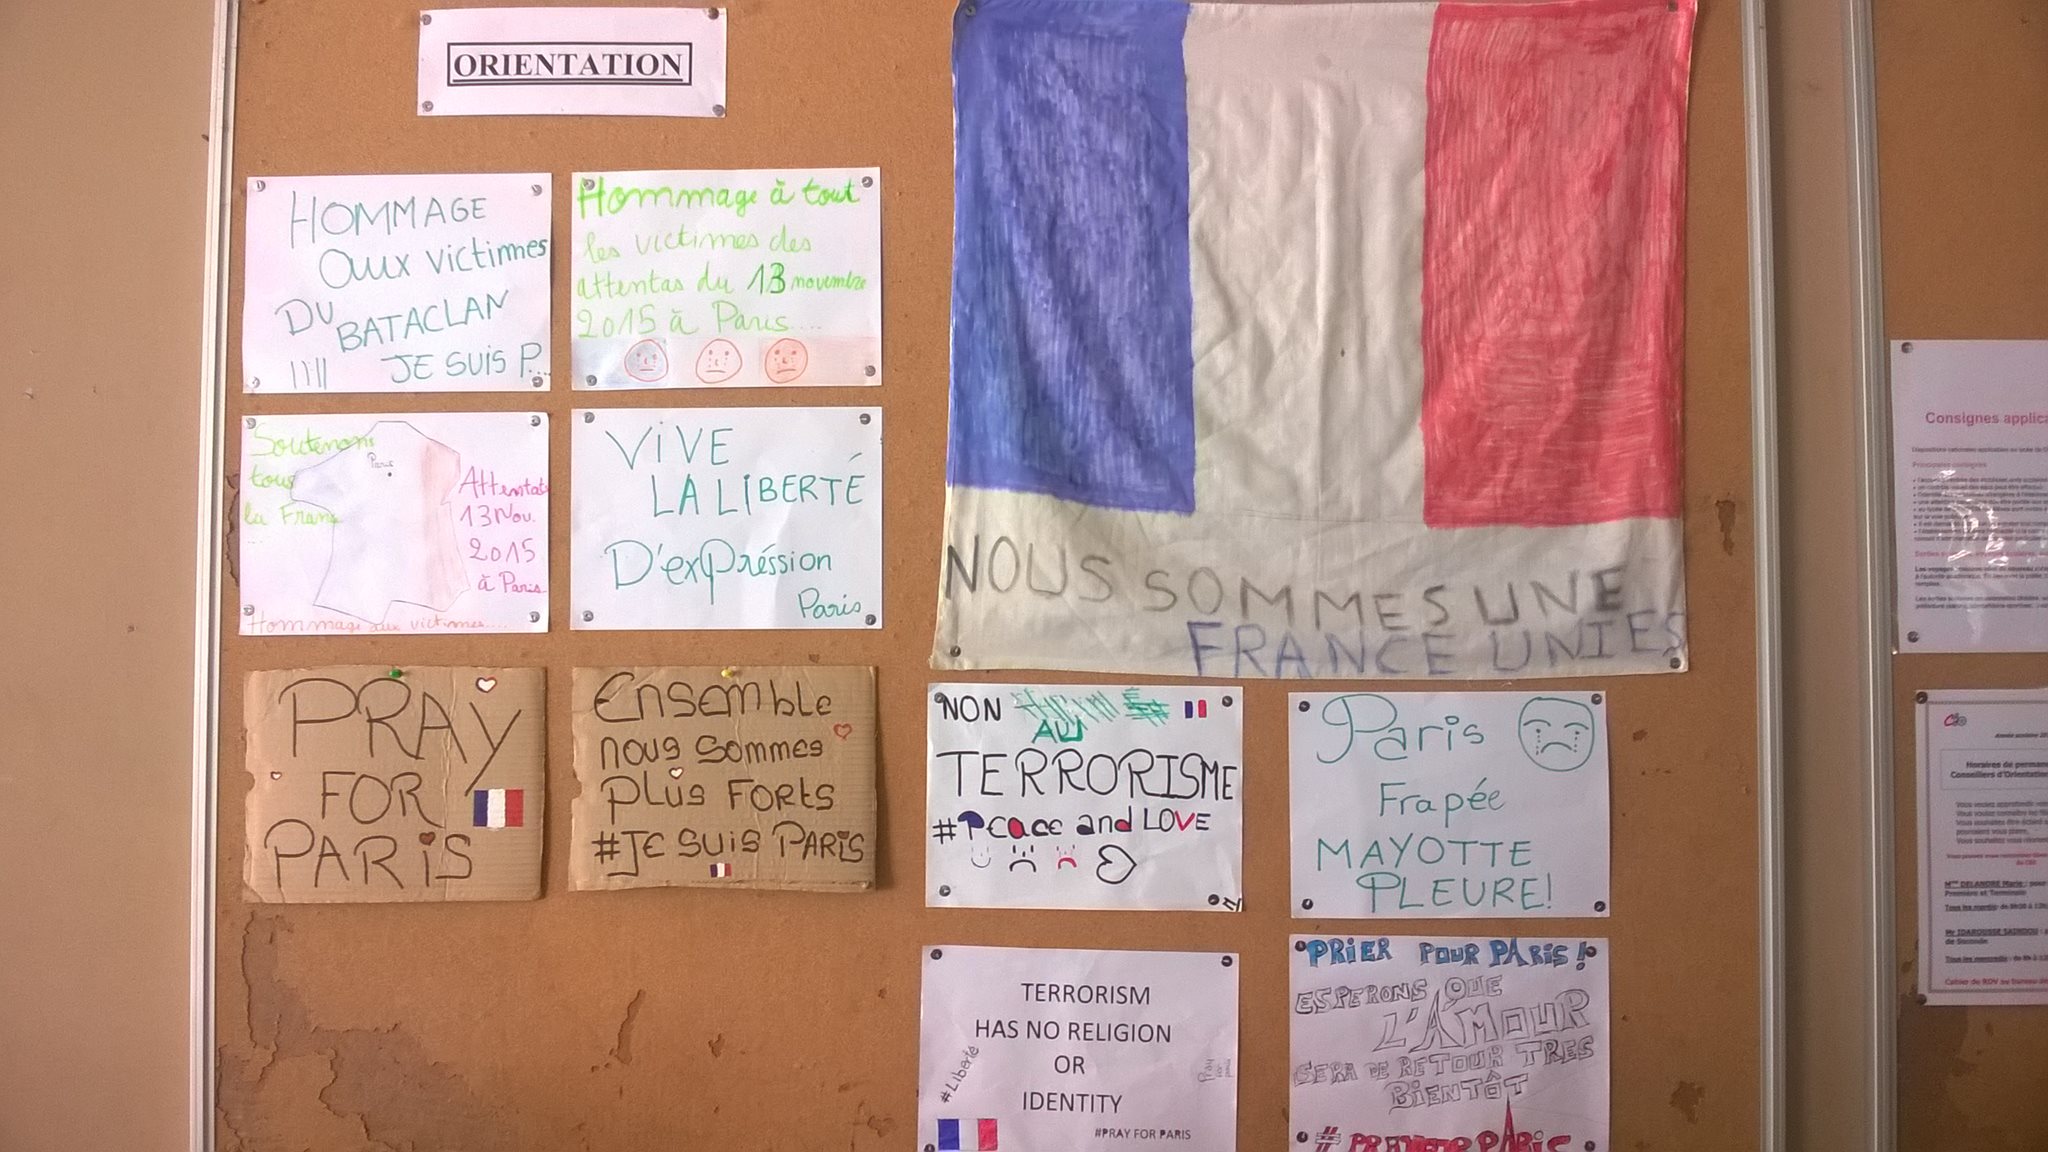 ORIENTATION
HOMMAGE
aux victimes
DU
BATACLAN
!!!!! JE SUIS P...
Hommage à tout
les victimes des
attentas du 13 novembre
2015 à Paris....
Soutenons
tous
la Franc
Paris
Attentats
13 Nov.
2015
à Paris
Hommage aux victimes....
ViVE
LA LIBERTÉ
D'exPréssion
Paris
PRAY
FOR
PARiS
Ensemble
nous sommes
plus forts
#JE SUIS PARIS
NOUS SOMMES UNE
FRANCE UNIES
NON
AU
TERRORISME
#Peace and LOVE
Paris
Frapée
MAYOTTE
PLEURE!
TERRORISM
HAS NO RELIGION
OR
IDENTITY
#Liberté
Pray
for
paris
#PRAY FOR PARIS
PRIER POUR PARIS !
ESPERONS QUE
L'AMOUR
SERA DE RETOUR TRES
BIENTÔT
#PRAYFORPARIS
Consignes applica
Principales consignes
Horaires de permane
Conseillers d'Orientatio
Mme DELANDRE Marie : pour
Première et Terminale
Mr IDAROUSSE SAINDOU :
de Seconde